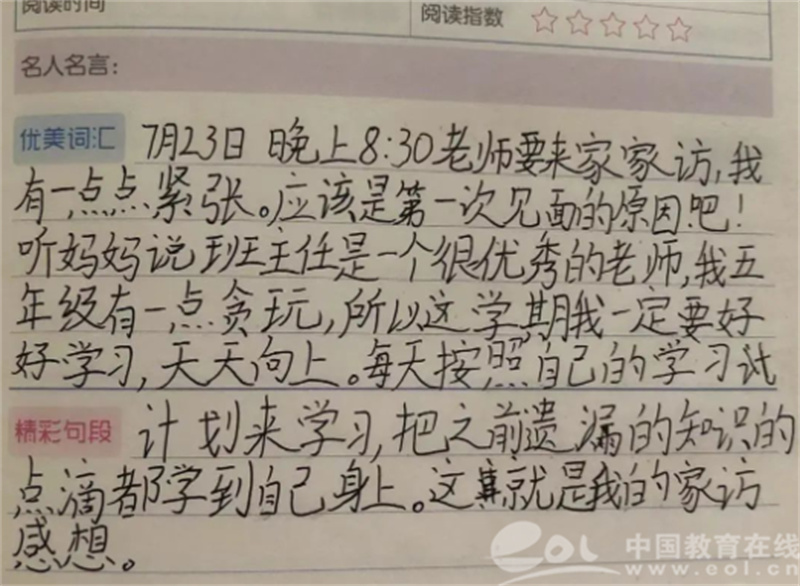 阅读时间
阅读指数 ☆☆☆☆☆
名人名言：
优美词汇 7月23日 晚上8:30老师要来家家访，我
有一点点紧张。应该是第一次见面的原因吧！
听妈妈说班主任是一个很优秀的老师，我五
年级有一点贪玩，所以这学期我一定要好
好学习，天天向上。每天按照自己的学习计
精彩句段 计划来学习，把之前遗漏的知识的
点滴都学到自己身上。这真就是我的家访
感想。
eol 中国教育在线
www.eol.cn